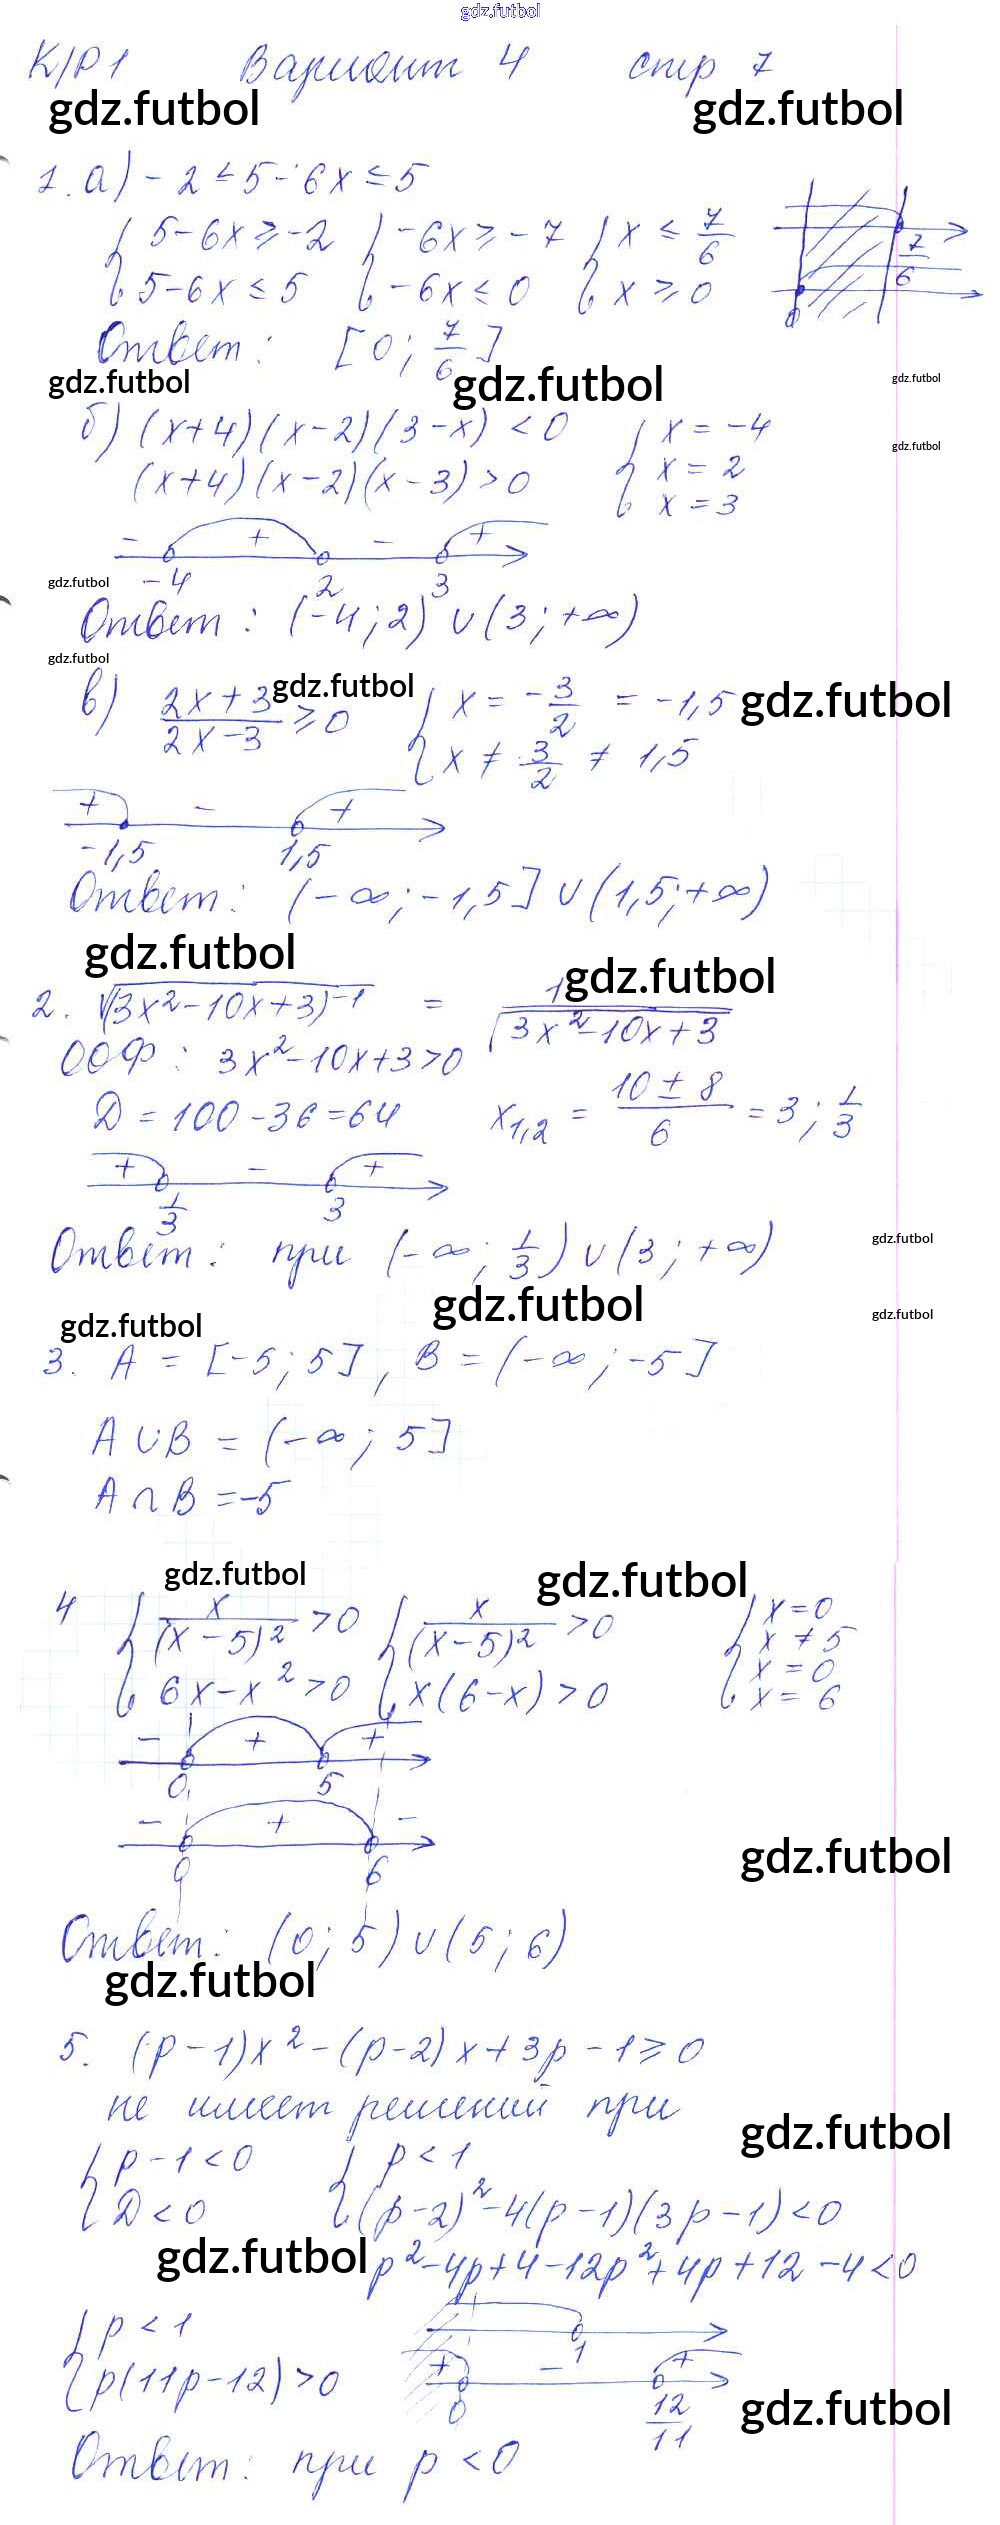 gdz.futbol
К/Р 1 Вариант 4 стр 7
gdz.futbol gdz.futbol
1. а) -2 ≤ 5 - 6x ≤ 5
{ 5-6x ≥ -2 { -6x ≥ -7 { x ≤ 7/6
{ 5-6x ≤ 5 { -6x ≤ 0 { x ≥ 0
7/6
0
Ответ: [0; 7/6]
gdz.futbol gdz.futbol gdz.futbol
б) (x+4)(x-2)(3-x) < 0 { x = -4
gdz.futbol
(x+4)(x-2)(x-3) > 0 x = 2
x = 3
- + - +
-4 2 3
gdz.futbol
Ответ: (-4; 2) ∪ (3; +∞)
gdz.futbol
в) (2x+3)/(2x-3) ≥ 0 { x = -3/2 = -1,5
gdz.futbol gdz.futbol
{ x ≠ 3/2 ≠ 1,5
+ - +
-1,5 1,5
Ответ: (-∞; -1,5] ∪ (1,5; +∞)
gdz.futbol gdz.futbol
2. √(3x²-10x+3)⁻¹ = 1/√(3x²-10x+3)
ООФ: 3x²-10x+3>0
D = 100 - 36 = 64 x₁,₂ = (10 ± 8)/6 = 3; 1/3
+ - +
1/3 3
Ответ: при (-∞; 1/3) ∪ (3; +∞)
gdz.futbol
gdz.futbol gdz.futbol gdz.futbol
3. A = [-5; 5], B = (-∞; -5]
A ∪ B = (-∞; 5]
A ∩ B = -5
gdz.futbol gdz.futbol
4 { x/(x-5)² > 0 { x/(x-5)² > 0 { x = 0
x ≠ 5
{ 6x - x² > 0 { x(6-x) > 0 x = 0
x = 6
- + +
0 5
- + -
0 6
gdz.futbol
Ответ: (0; 5) ∪ (5; 6)
gdz.futbol
5. (p-1)x² - (p-2)x + 3p - 1 ≥ 0
не имеет решений при
gdz.futbol
{ p-1 < 0 { p < 1
{ D < 0 { (p-2)² - 4(p-1)(3p-1) < 0
gdz.futbol
p² - 4p + 4 - 12p² + 4p + 12 - 4 < 0
{ p < 1
1
{ p(11p-12) > 0 + - +
0 12/11
gdz.futbol
Ответ: при p < 0